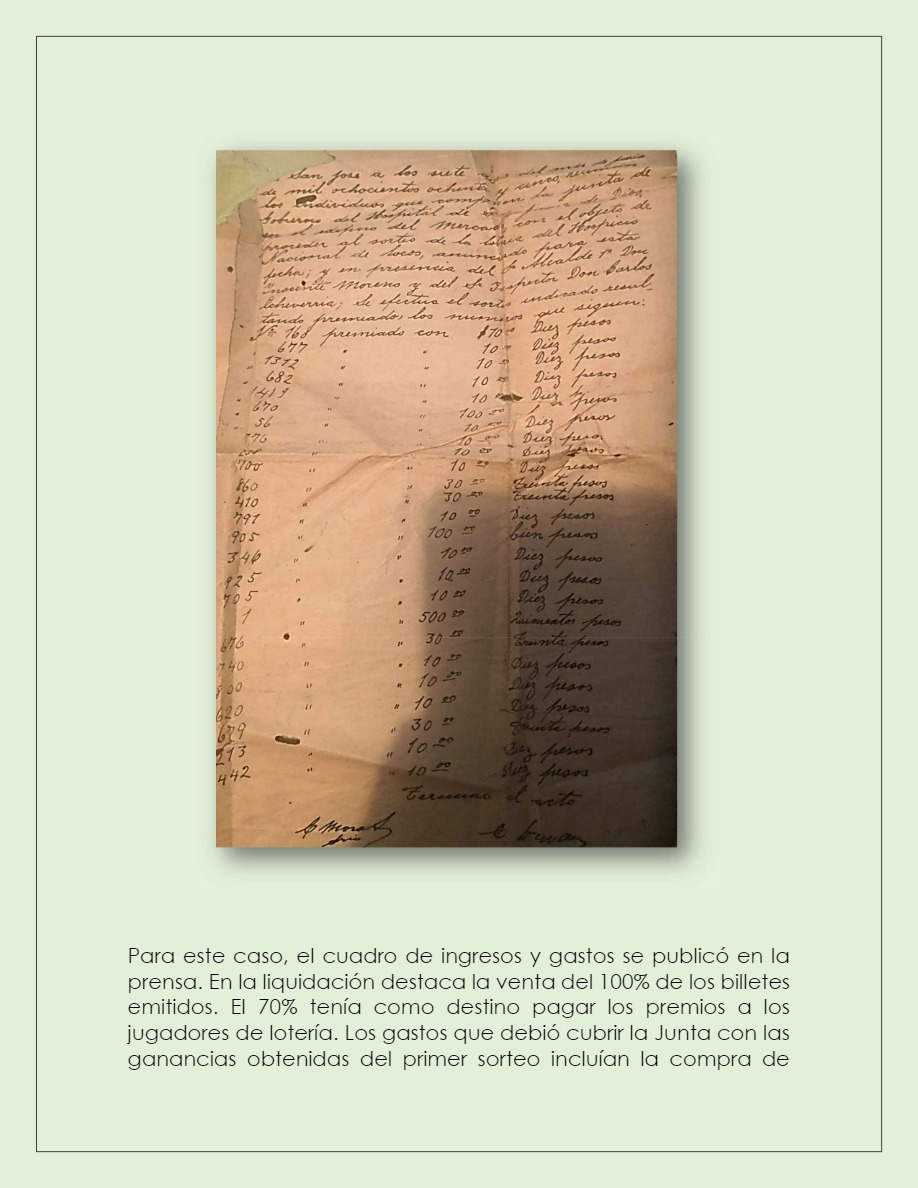 San José a los siete
de mil ochocientos ochenta y cinco, reunidos
los individuos que componen la Junta de
Gobierno del Hospital de San Juan de Dios,
en el edificio del Mercado, con el objeto de
proceder al sorteo de la lotería del Hospicio
Nacional de locos, anunciado para esta
fecha; y en presencia del Sr. Alcalde 1º Don
Inocente Moreno y del Sr. Inspector Don Carlos
Echeverria; se efectua el sorteo indicado resul-
tando premiado, los numeros que siguen:
Nº 168 premiado con $10.00 Diez pesos
" 677 " " 10 00 Diez pesos
" 1312 " " 10 00 Diez pesos
" 682 " " 10 00 Diez pesos
" 1419 " " 10 00 Diez pesos
" 670 " " 100 00 pesos
" 56 " " 10 00 Diez pesos
776 10 00 Diez pesos
" " 10 00 Diez pesos
700 " " 10 00 Diez pesos
860 " " 30 00 Treinta pesos
410 " " 30 00 Treinta pesos
791 " " 10 00 Diez pesos
905 " " 100 00 Cien pesos
346 " " 10 00 Diez pesos
925 " " 10 00 Diez pesos
705 " " 10 00 Diez pesos
1 " " 500 00 Quinientos pesos
676 " " 30 00 Treinta pesos
740 " " 10 00 Diez pesos
800 " " 10 00 Diez pesos
620 " " 10 00 Diez pesos
679 " " 30 00 Treinta pesos
213 " " 10 00 Diez pesos
442 " " 10 00 Diez pesos
Termino el acto
C Mora
Srio
Para este caso, el cuadro de ingresos y gastos se publicó en la
prensa. En la liquidación destaca la venta del 100% de los billetes
emitidos. El 70% tenía como destino pagar los premios a los
jugadores de lotería. Los gastos que debió cubrir la Junta con las
ganancias obtenidas del primer sorteo incluían la compra de